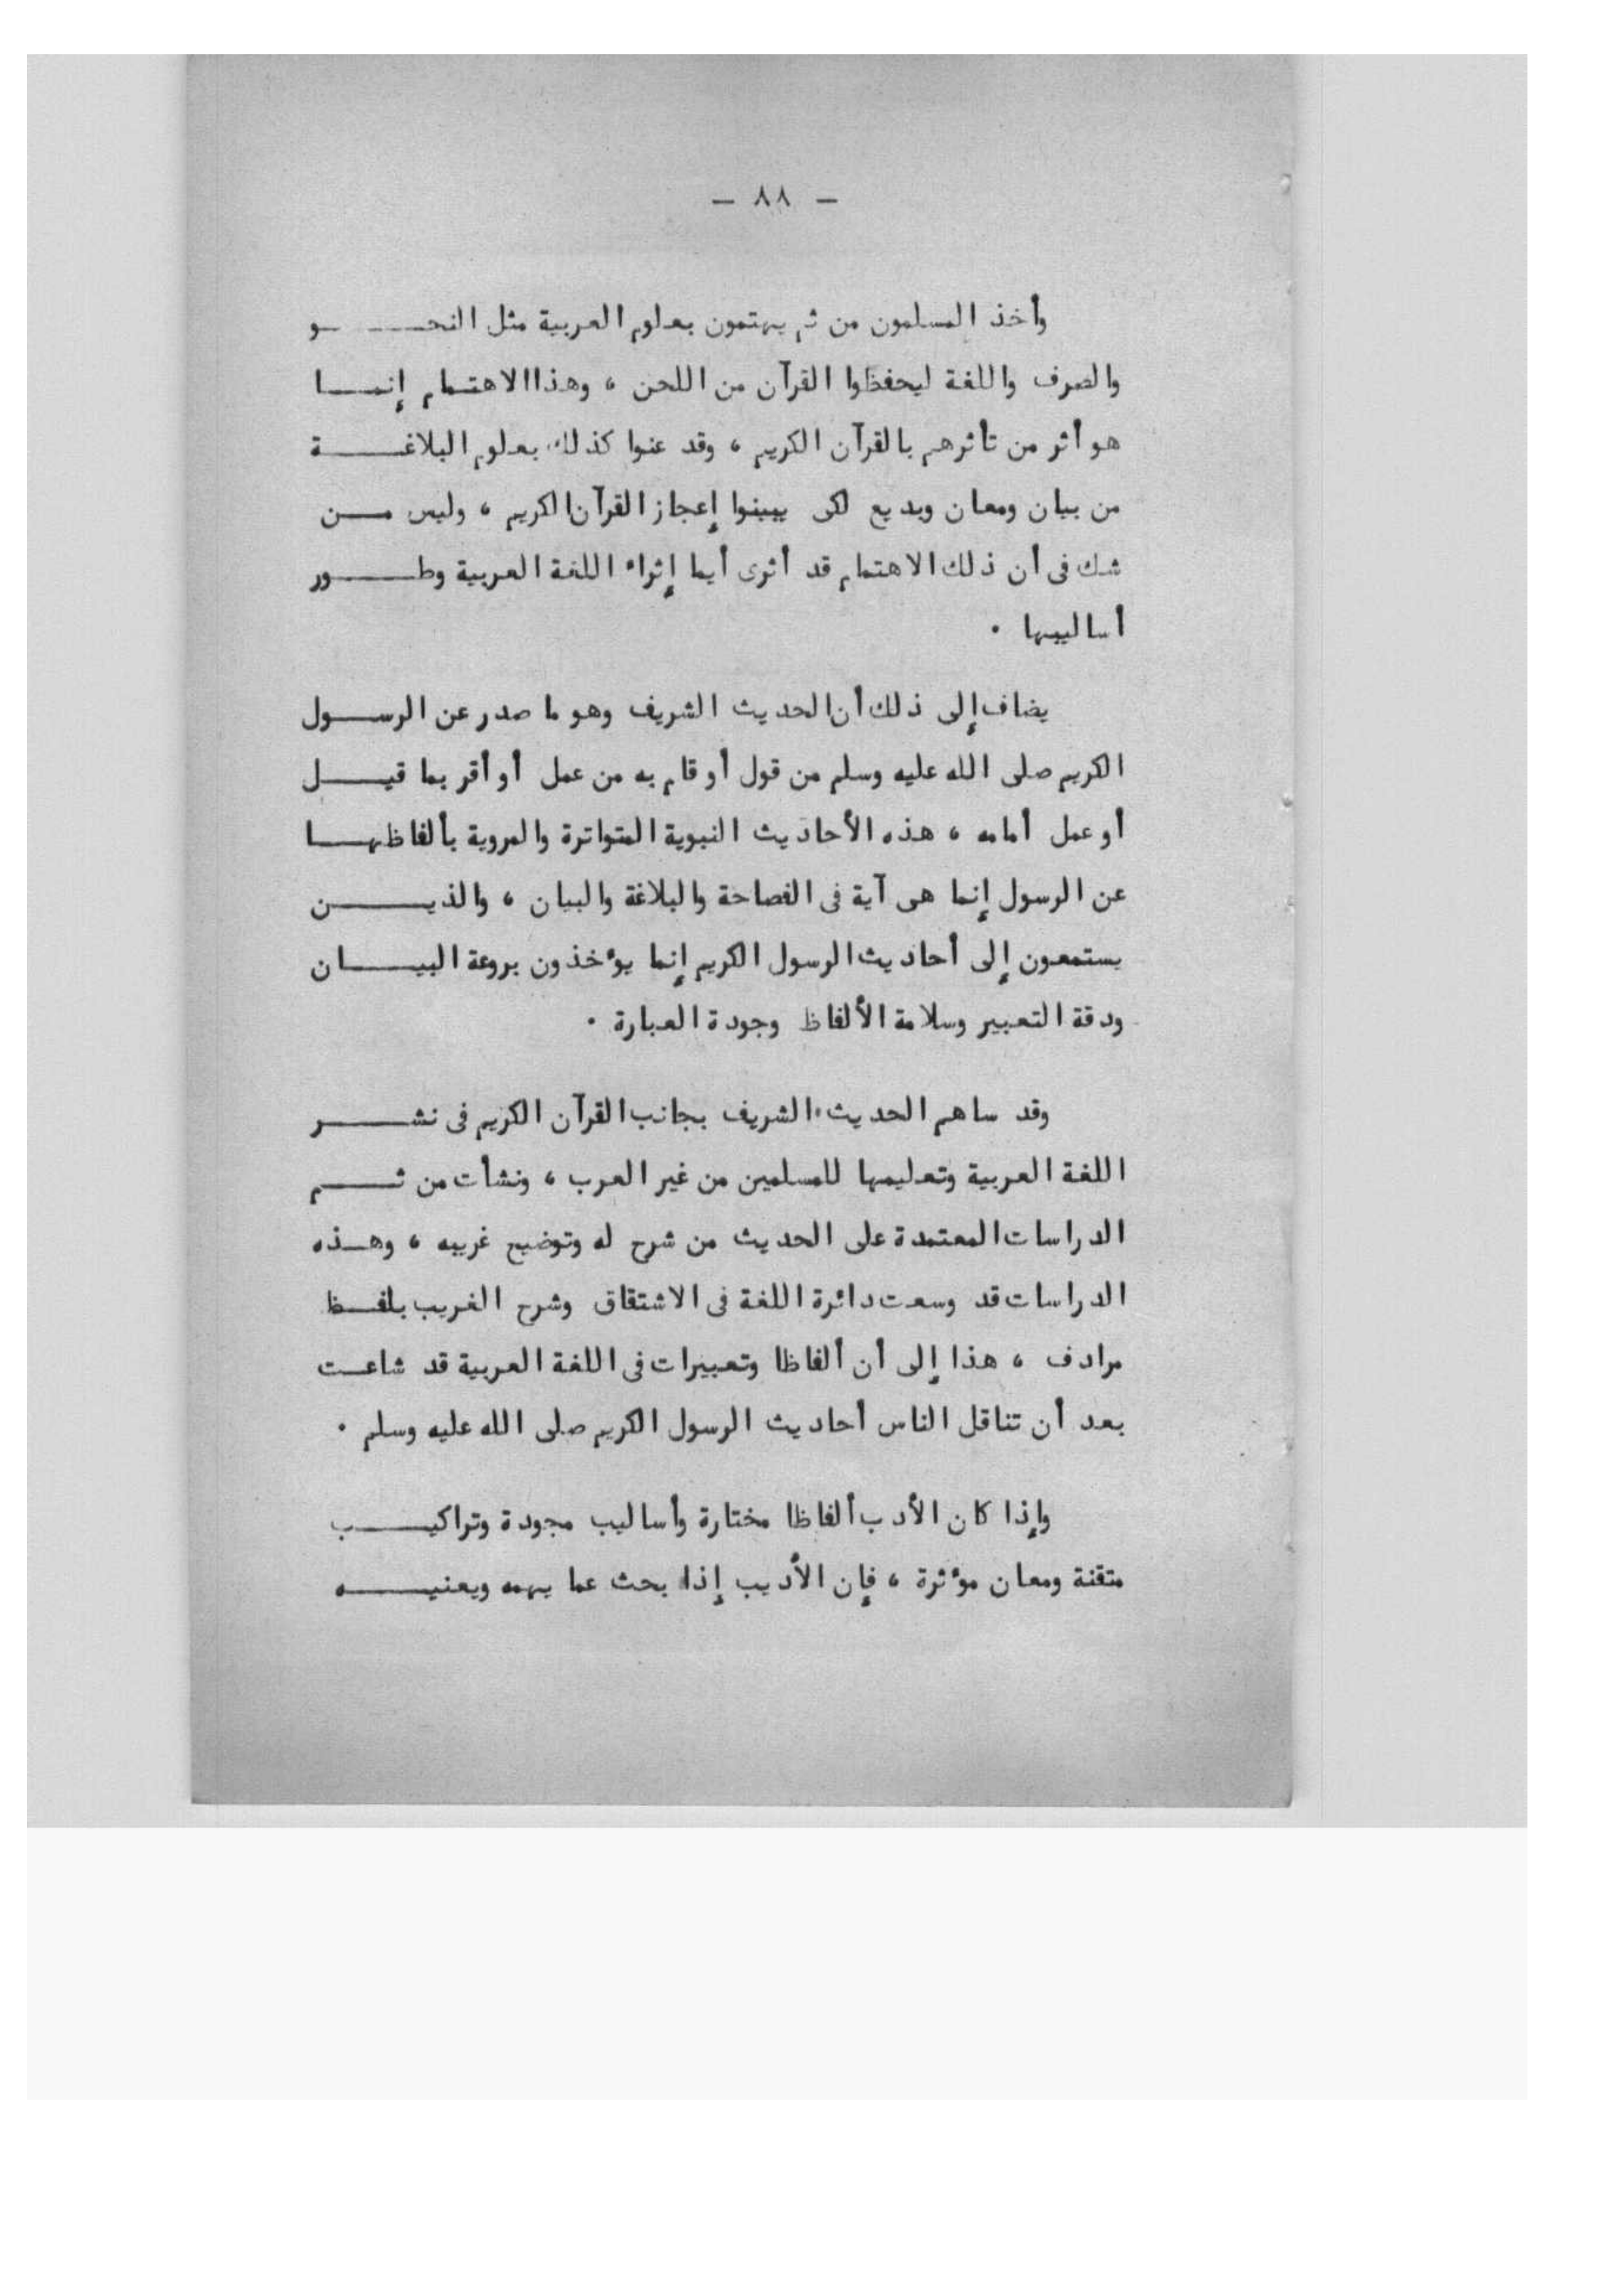 - ٨٨ -
وأخذ المسلمون من ثم يهتمون بعلوم العربية مثل النحـــو
والصرف واللغة ليحفظوا القرآن من اللحن ، وهذا الاهتمام إنمـــا
هو أثر من تأثرهم بالقرآن الكريم ، وقد عنوا كذلك بعلوم البلاغـــة
من بيان ومعان وبديع لكى يبينوا إعجاز القرآن الكريم ، وليس مـــن
شك فى أن ذلك الاهتمام قد أثرى أيما إثراء اللغة العربية وطـــور
أساليبها .
يضاف إلى ذلك أن الحديث الشريف وهو ما صدر عن الرســـول
الكريم صلى الله عليه وسلم من قول أو قام به من عمل أو أقر بما قيـــل
أو عمل أمامه ، هذه الأحاديث النبوية المتواترة والمروية بألفاظهـــا
عن الرسول إنما هى آية فى الفصاحة والبلاغة والبيان ، والذيـــن
يستمعون إلى أحاديث الرسول الكريم إنما يؤخذون بروعة البيـــان
ودقة التعبير وسلامة الألفاظ وجودة العبارة .
وقد ساهم الحديث الشريف بجانب القرآن الكريم فى نشـــر
اللغة العربية وتعليمها للمسلمين من غير العرب ، ونشأت من ثـــم
الدراسات المعتمدة على الحديث من شرح له وتوضيح غريبه ، وهـــذه
الدراسات قد وسعت دائرة اللغة فى الاشتقاق وشرح الغريب بلفـــظ
مرادف ، هذا إلى أن ألفاظا وتعبيرات فى اللغة العربية قد شاعـــت
بعد أن تناقل الناس أحاديث الرسول الكريم صلى الله عليه وسلم .
وإذا كان الأدب ألفاظا مختارة وأساليب مجودة وتراكيـــب
متقنة ومعان مؤثرة ، فإن الأديب إذا بحث عما يهمه ويعنيـــه